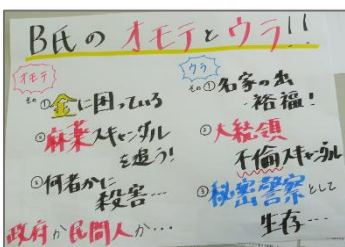 B氏のオモテとウラ!!
オモテ
その①金に困っている
②麻薬スキャンダル
を追う!
③何者かに
殺害…
政府か民間人か…
ウラ
その①名家の出
裕福!
②大統領
不倫スキャンダル
③秘密警察として
生存…